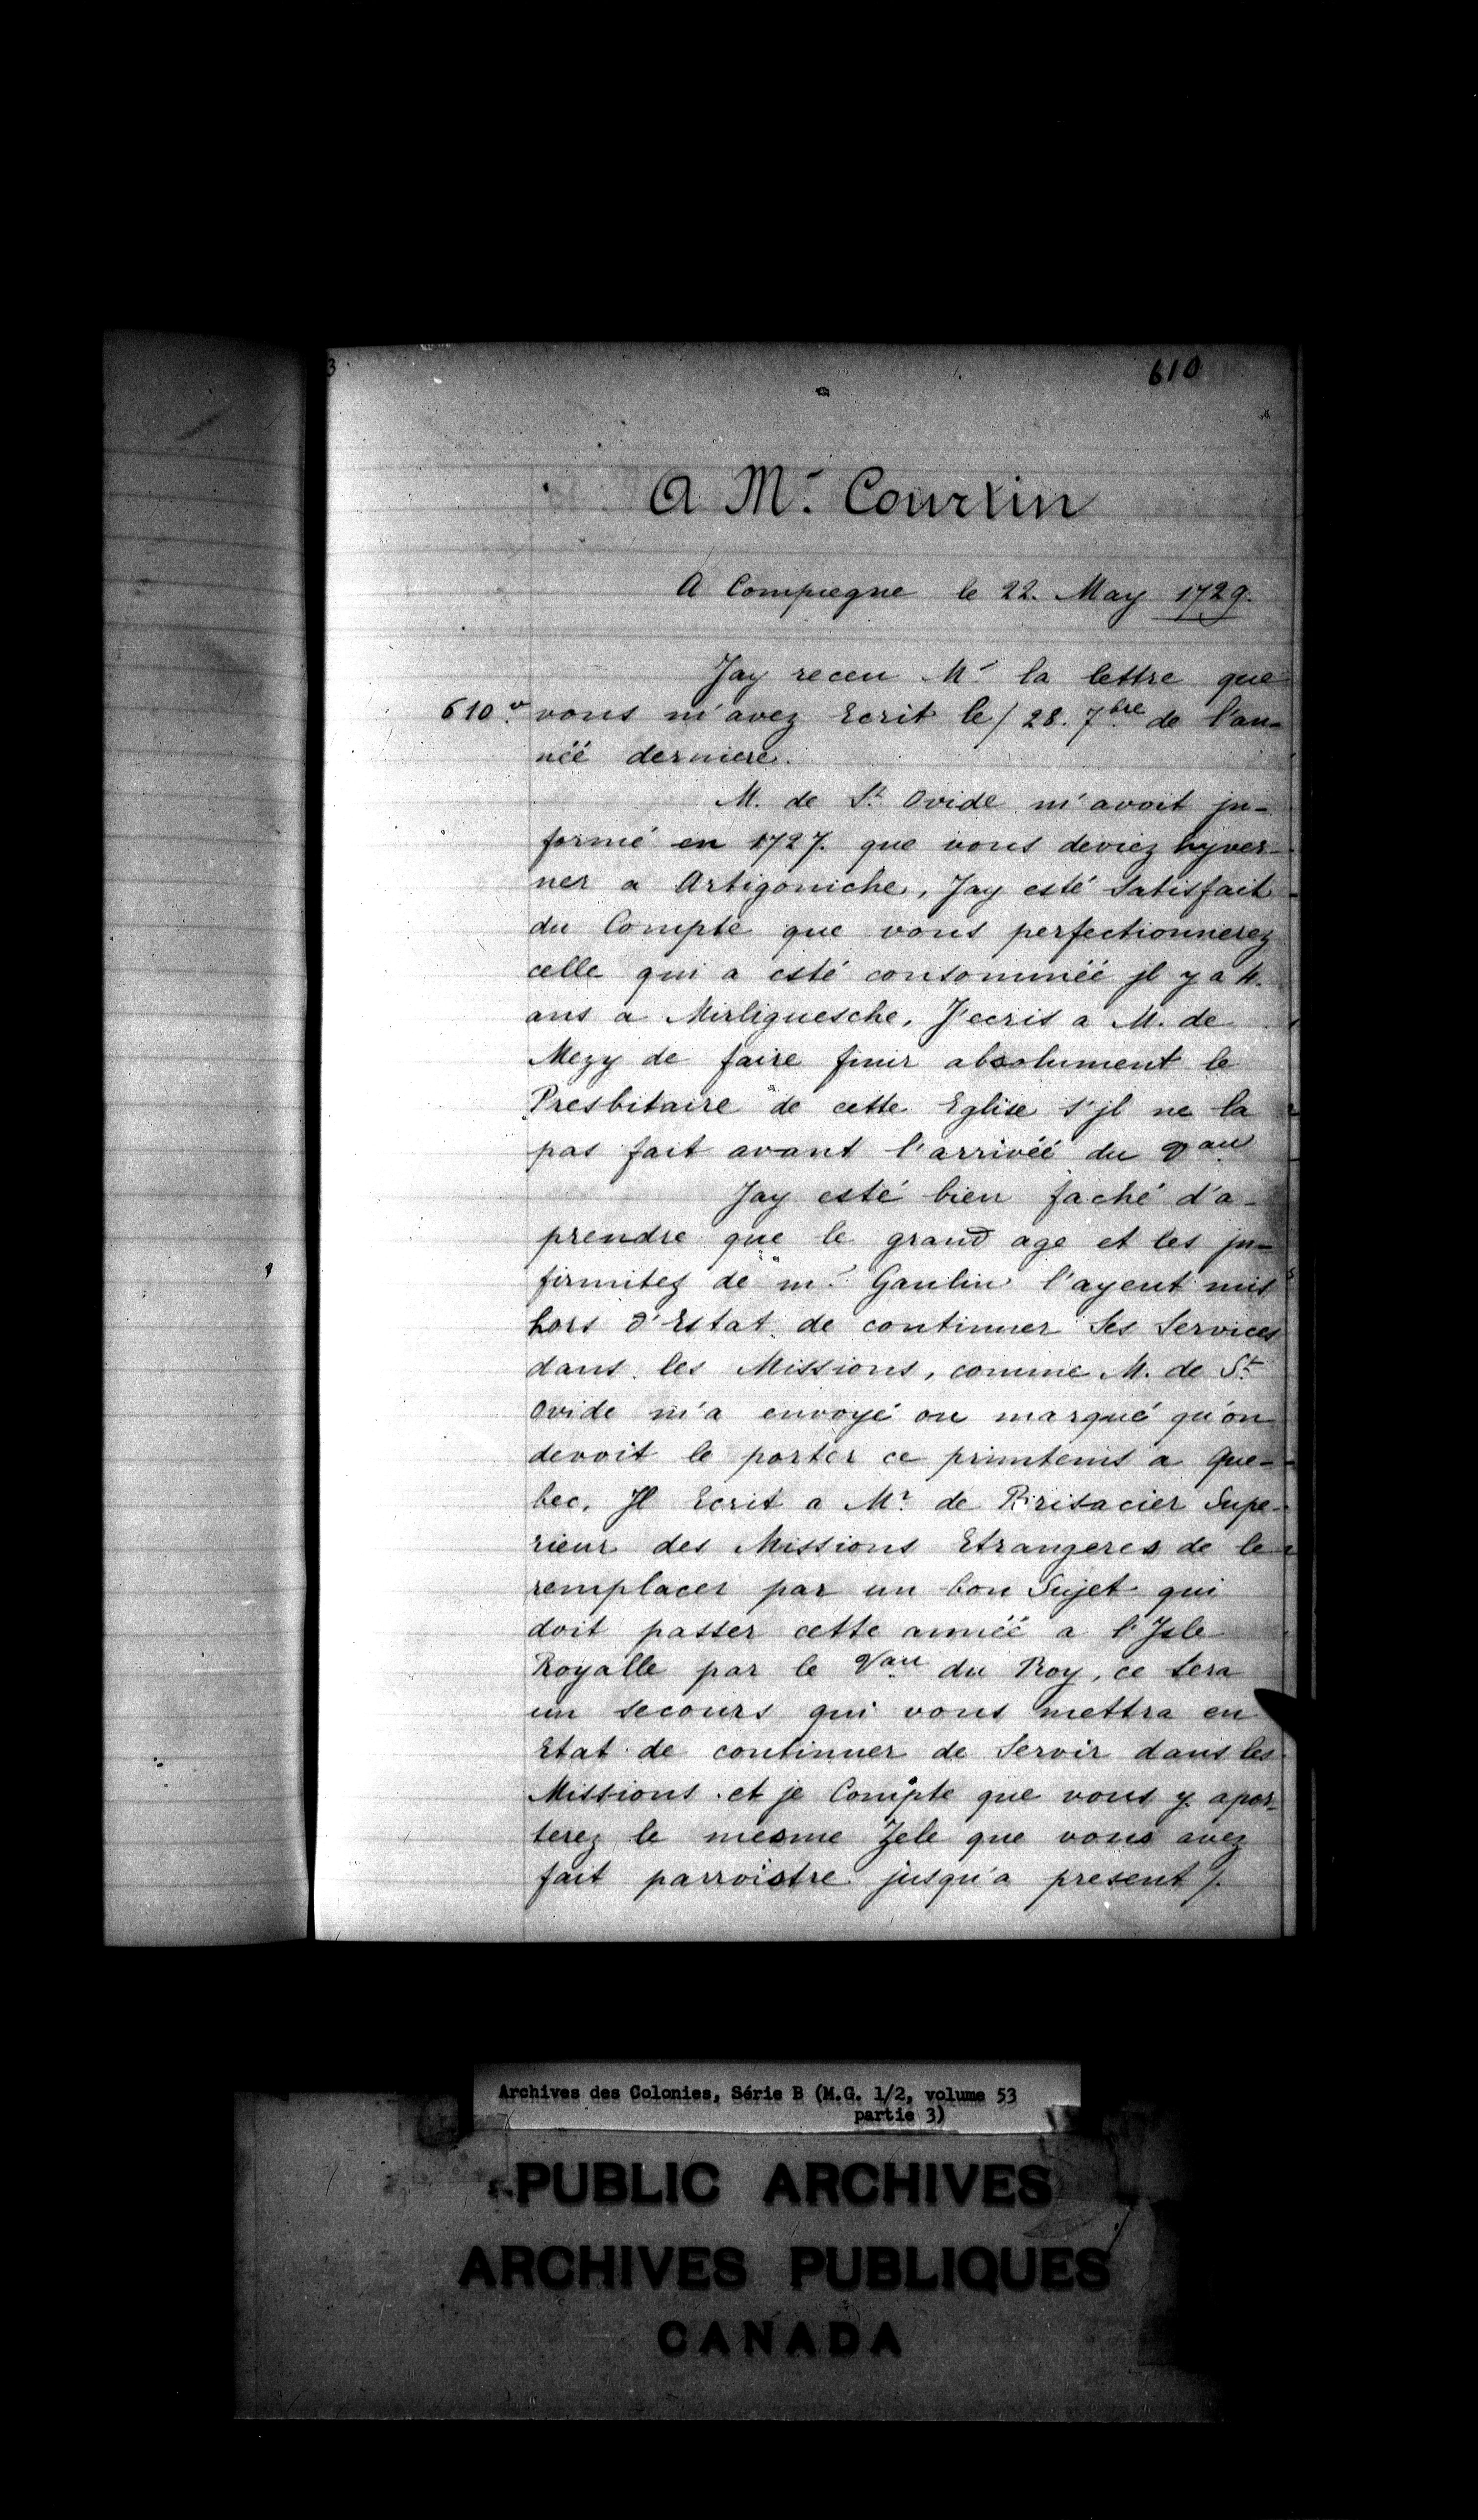 3
610
A Mr. Courtin
A Compiegne le 22. May 1729.
Jay receu Mr. la lettre que
610v. vous m'avez Ecrit le / 28. 7bre de l'an-
néé derniere.
M. de St. Ovide m'avoit jn-
formé en 1727. que vous deviez hyver-
ner a Artigoniche, Jay esté Satisfait
du Compte que vous perfectionnerez
celle qui a esté consomméé jl y a 4.
ans a Mirliguesche. J'ecris a M. de
Mezy de faire finir absolument le
Presbitaire de cette Eglise s'jl ne la
pas fait avant l'arrivéé du Vau
Jay esté bien faché d'a-
prendre que le grand age et les jn-
firmitez de mr. Gaulin l'ayent mis
hors d'Estat de continuer Ses Services
dans les Missions, comme M. de St.
Ovide m'a envoyé ou marqué qu'on
devoit le porter ce printems a Que-
bec. Jl Ecrit a Mr. de Brisacier Supe-
rieur des Missions Etrangeres de le
remplacer par un bon Sujet qui
doit passer cette annéé a l'Jsle
Royalle par le Vau du Roy, ce Sera
un secours qui vous mettra en
Etat de continuer de Servir dans les
Missions et je Compte que vous y apor-
terez le mesme Zele que vous avez
fait parroistre jusqu'a present /.
Archives des Colonies, Série B (M.G. 1/2, volume 53
partie 3)
PUBLIC ARCHIVES
ARCHIVES PUBLIQUES
CANADA